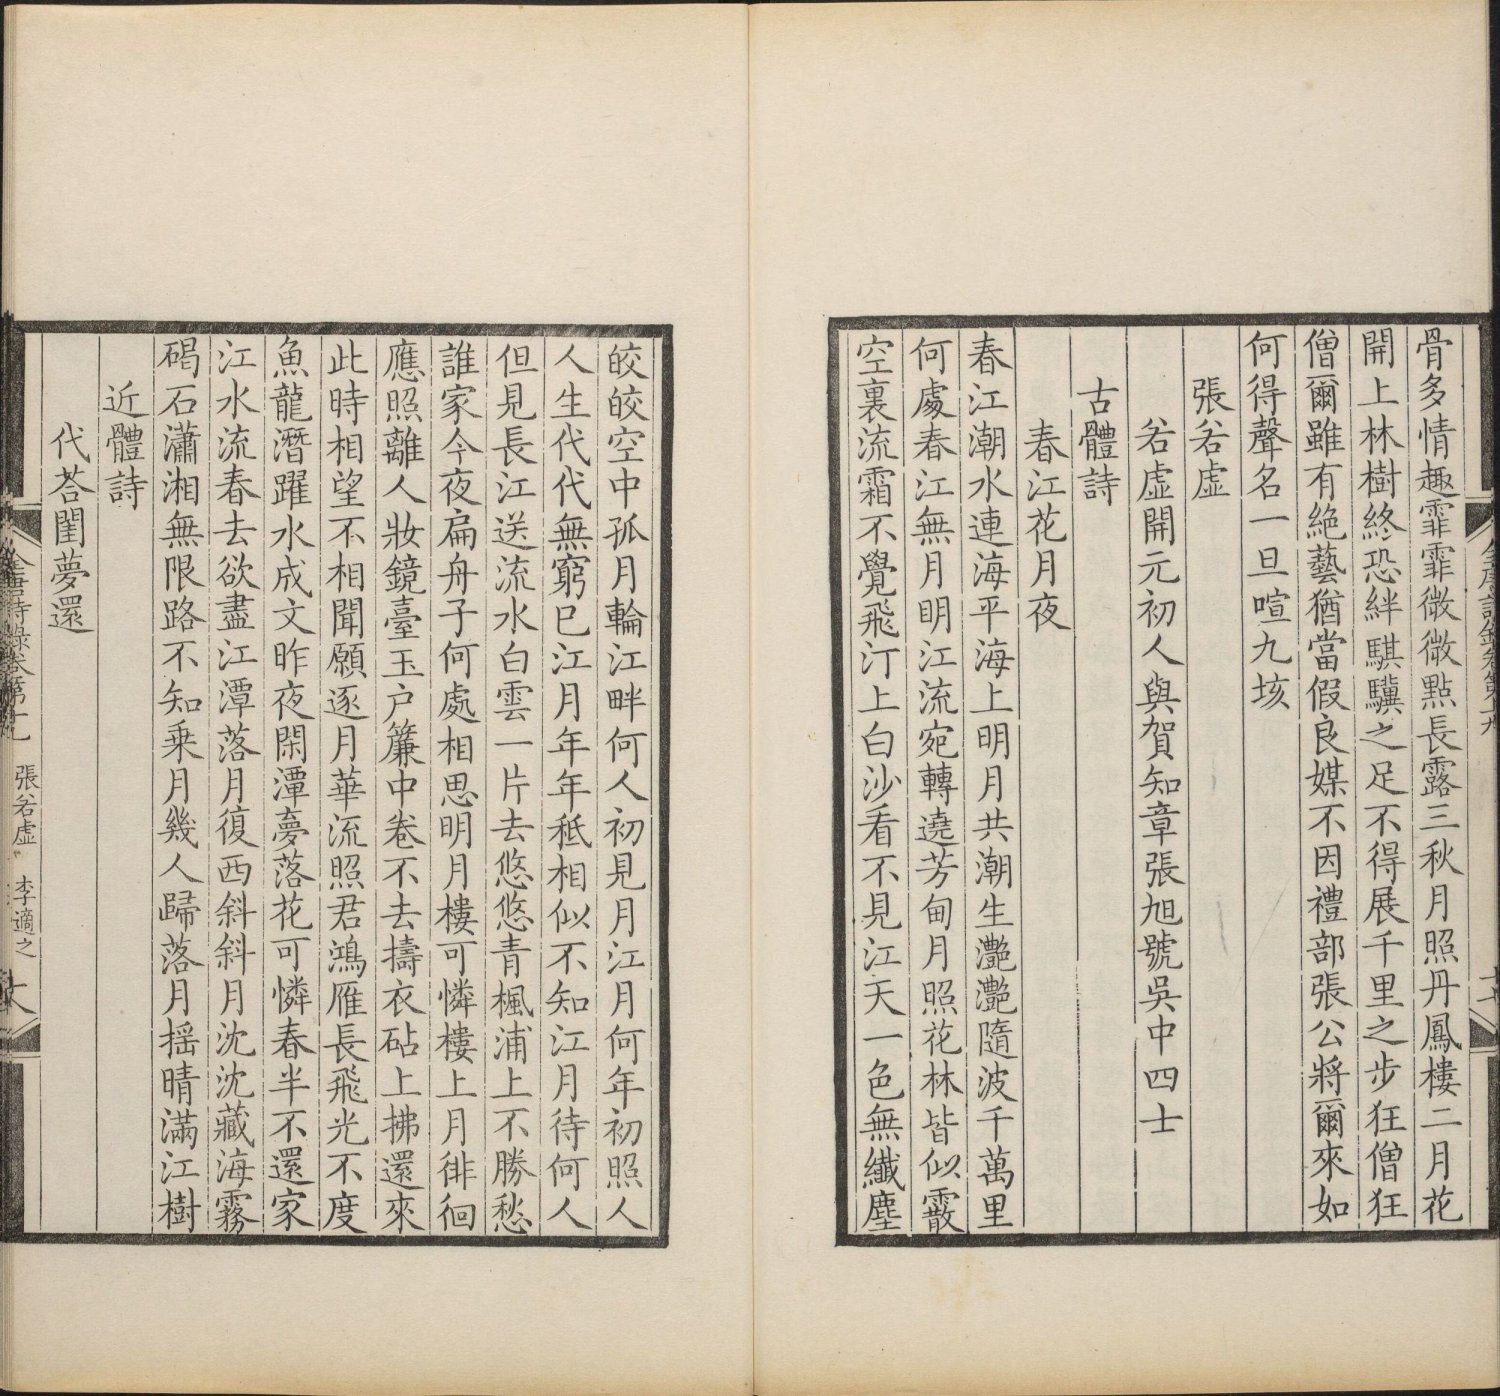 骨多情趣霏霏微微點長露三秋月照丹鳳樓二月花
開上林樹終恐絆騏驥之足不得展千里之步狂僧狂
僧爾雖有絶藝猶當假良媒不因禮部張公將爾來如
何得聲名一旦喧九垓
張若虛
若虛開元初人與賀知章張旭號吳中四士
古體詩
春江花月夜
春江潮水連海平海上明月共潮生灩灩隨波千萬里
何處春江無月明江流宛轉遶芳甸月照花林皆似霰
空裏流霜不覺飛汀上白沙看不見江天一色無纖塵
皎皎空中孤月輪江畔何人初見月江月何年初照人
人生代代無窮已江月年年秪相似不知江月待何人
但見長江送流水白雲一片去悠悠青楓浦上不勝愁
誰家今夜扁舟子何處相思明月樓可憐樓上月徘徊
應照離人妝鏡臺玉户簾中卷不去擣衣砧上拂還來
此時相望不相聞願逐月華流照君鴻雁長飛光不度
魚龍潛躍水成文昨夜閑潭夢落花可憐春半不還家
江水流春去欲盡江潭落月復西斜斜月沈沈藏海霧
碣石瀟湘無限路不知乗月幾人歸落月摇晴滿江樹
近體詩
代荅閨夢還
全唐詩錄卷第七 張若虛 李適之